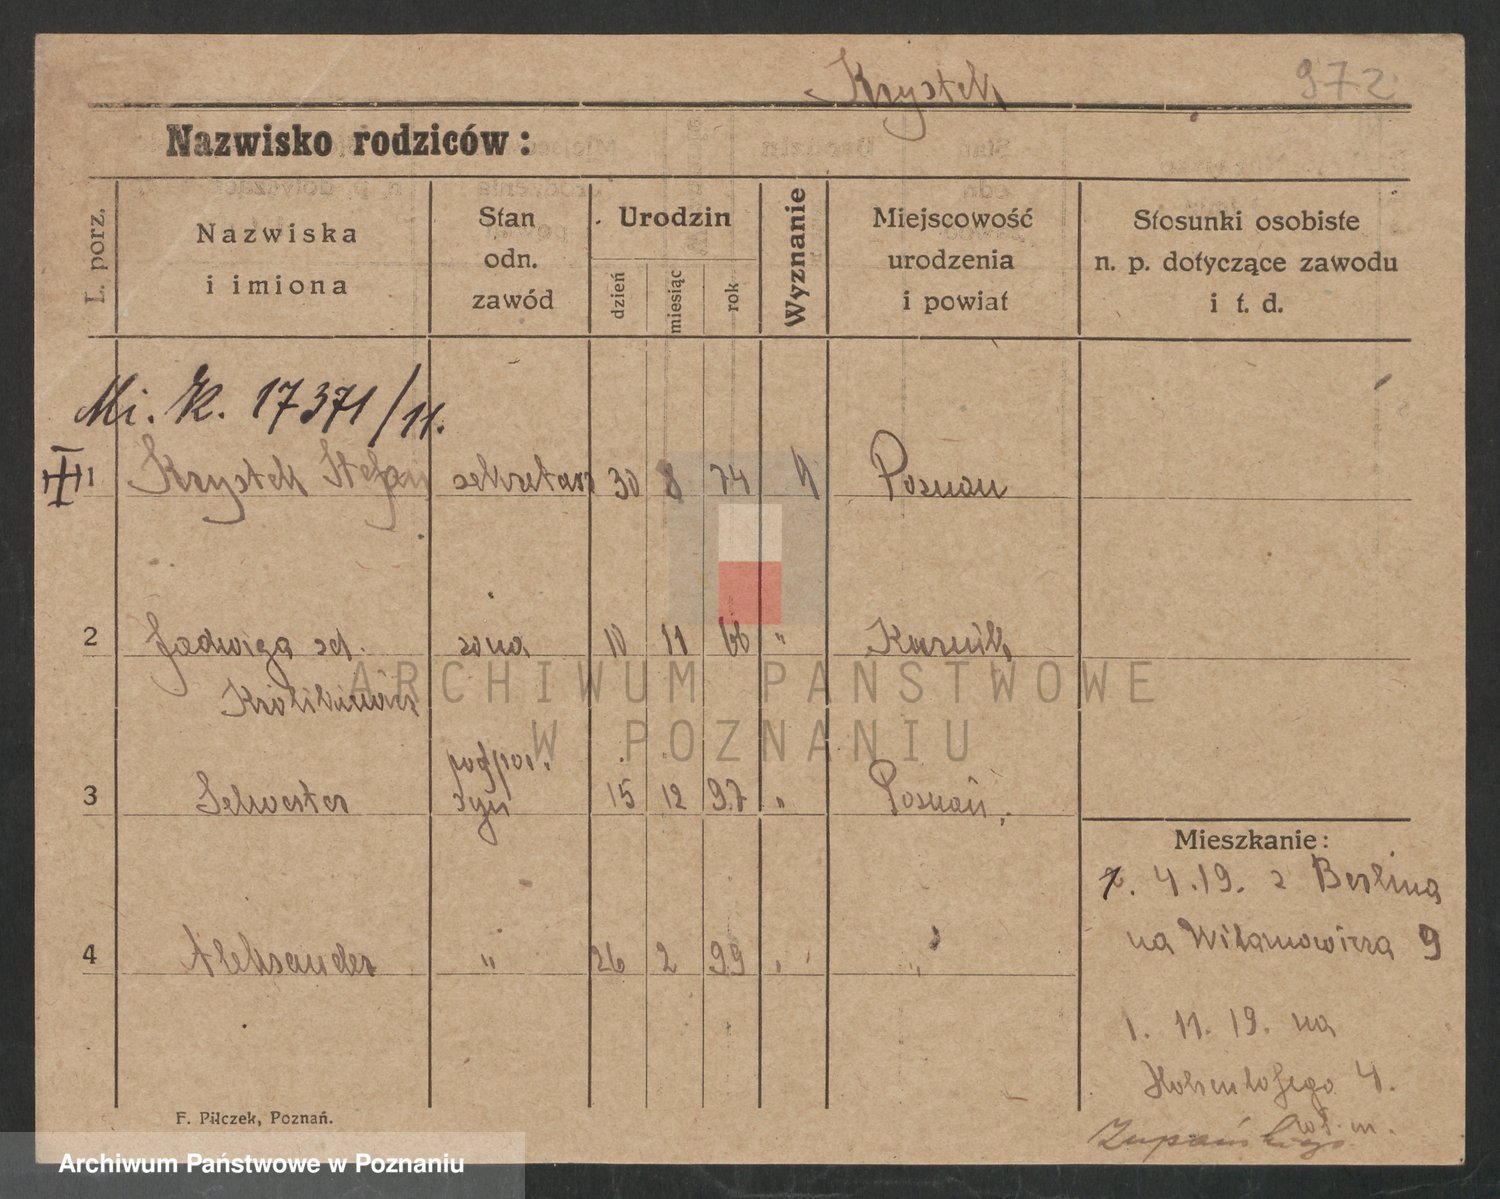 Krystek 972
Nazwisko rodziców :
L. porz.
Nazwiska
i imiona
Stan
odn.
zawód
Urodzin
dzień
miesiąc
rok
Wyznanie
Miejscowość
urodzenia
i powiat
Stosunki osobiste
n. p. dotyczące zawodu
i t. d.
Mi. K. 17371/11.
1 Krystek Stefan sekretarz 30 8 74 Poznan
2 Jadwiga zona 10 11 66 " Kurnik
Królikiewicz
podpor.
3 Selwester syn 15 12 97 " Poznań,
Mieszkanie:
4.19. z Berlina
na Witamowicza 9
4 Aleksander " 26 2 99 " "
1. 11. 19. na
Hohenlohego 4.
Zupańskiego
F. Piłczek, Poznań.
ARCHIWUM PAŃSTWOWE
W POZNANIU
Archiwum Państwowe w Poznaniu